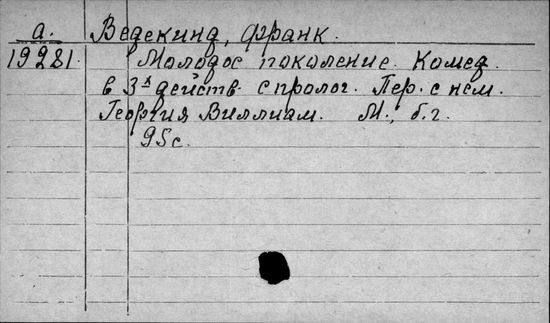 а. Ведекинд, Франк.
19281. Молодое поколение. Комед.
в 3х действ. с пролог. Пер. с нем.
Георгия Виллиам. М., б.г.
95с.